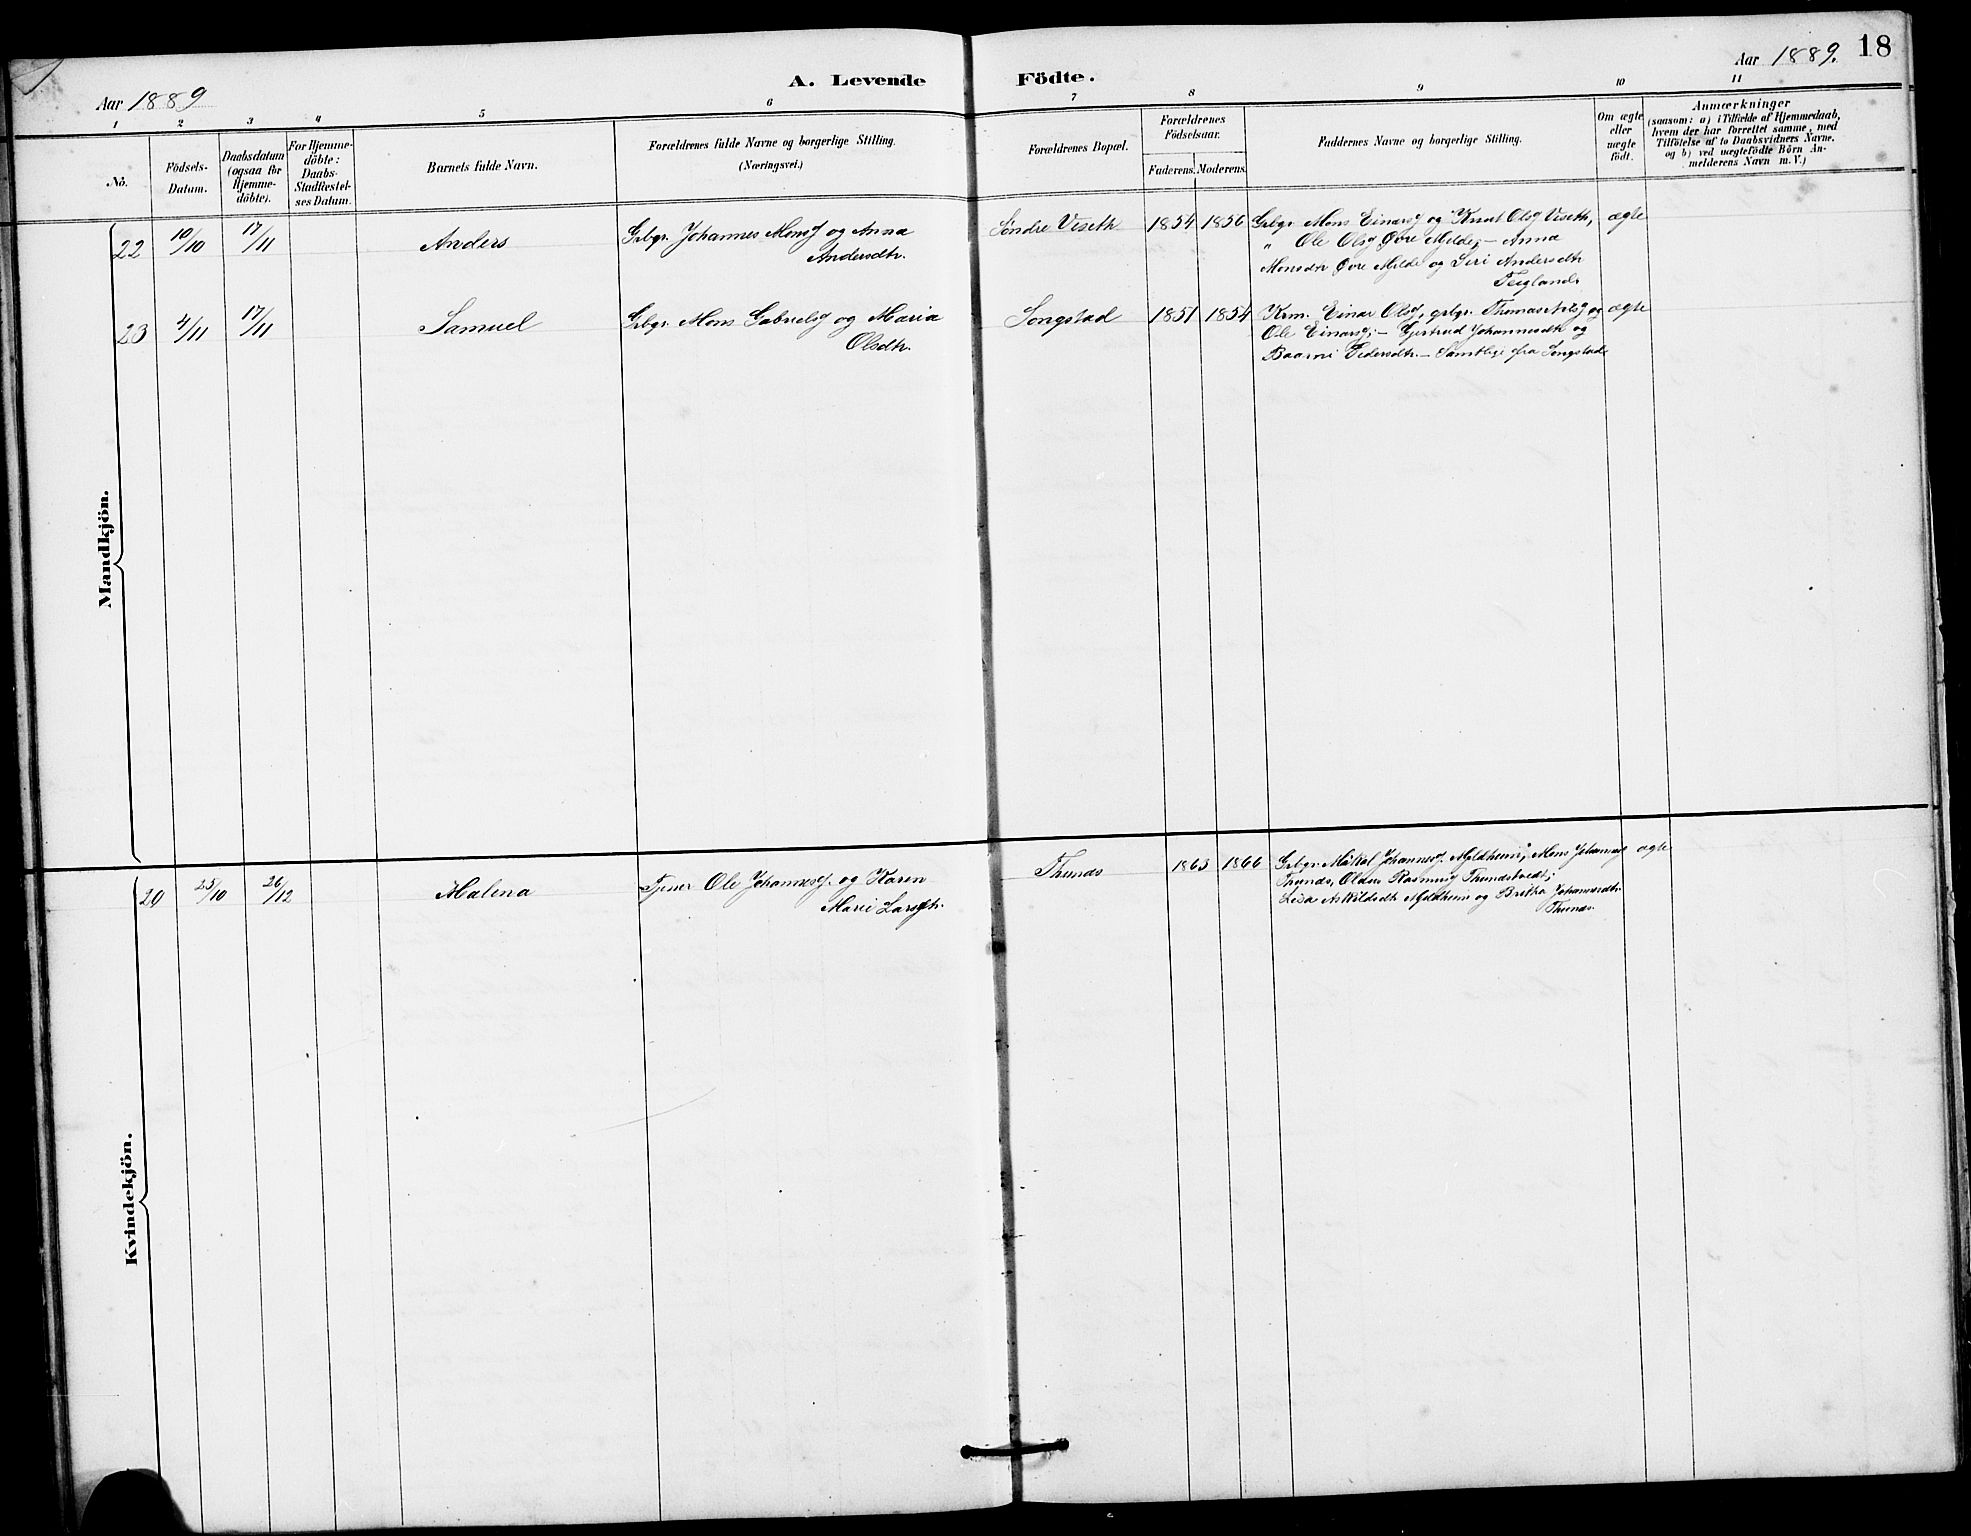 Aar 1889
A. Levende Födte.
Aar 1889.
18
1 2 3 4 5 6 7 8 9 10 11
No.
Födsels-
Datum.
Daabsdatum
(ogsaa for
Hjemme-
döbte).
For Hjemme-
döbte:
Daabs-
Stadfæstel-
ses Datum.
Barnets fulde Navn.
Forældrenes fulde Navne og borgerlige Stilling.
(Næringsvei.)
Forældrenes Bopæl.
Forældrenes
Födselsaar.
Faderens. Moderens.
Faddernes Navne og borgerlige Stilling.
Om ægte
eller
uægte
födt.
Anmærkninger
(saasom: a) i Tilfælde af Hjemmedaab,
hvem der har forrettet samme, med
Tilföielse af to Daabsvidners Navne.
og b) ved uægtefödte Börn An-
melderens Navn m. V.)
Mandkjön.
22 10/10 17/11 Anders Grbgr. Johannes Monss og Anna
Andersdtr.
Söndre Viseth 1854 1856 Grbgr Mons Einarss og Knut Olss Viseth, ægte
" Ole Olss Øvre Mjelde, – Anna
Monsdtr Øvre Mjelde og Siri Andersdtr
Teigland.
23 4/11 17/11 Samuel Grbgr. Mons Gabrielss og Maria
Olsdtr.
Songstad 1851 1854 Krm. Einar Olss, grbgr. Thomas Nilss og ægte
Ole Einarss; – Gjertrud Johannesdtr og
Pedersdtr. – Samtlige fra Songstad.
Kvindekjön.
20 25/10 26/12 Malena Tjener Ole Johanness. og Karen
Marie Larsdtr.
Thunæs 1863 1866 Grbgr. Mikal Johanness. Mjeldheim, Mons Johanness ægte
Thunæs, Rasmuss Thunestvedt;
Lisa Askildsdtr Mjeldheim og Britha Johannesdtr.
Thunæs.